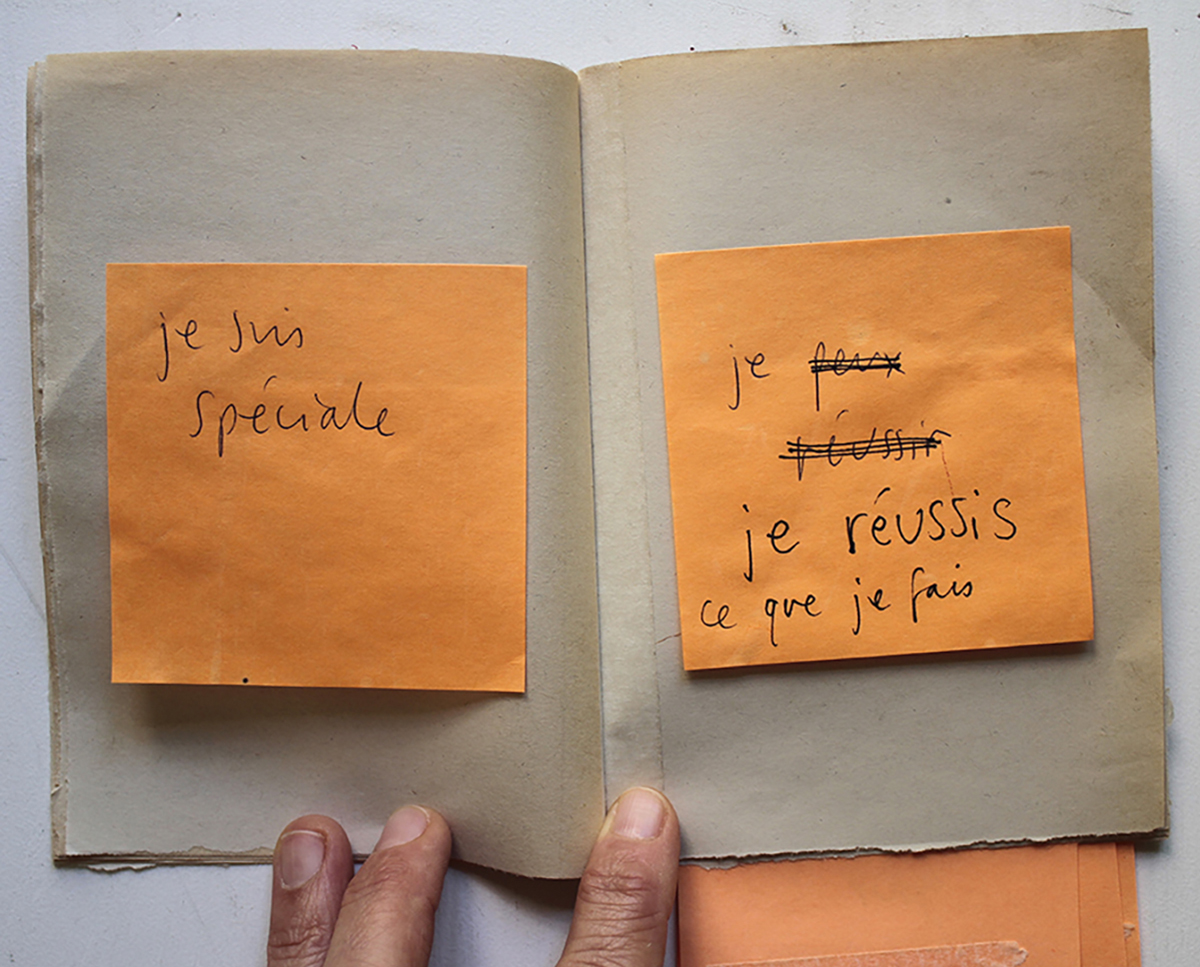 je suis
spéciale
je peux
réussir
je réussis
ce que je fais